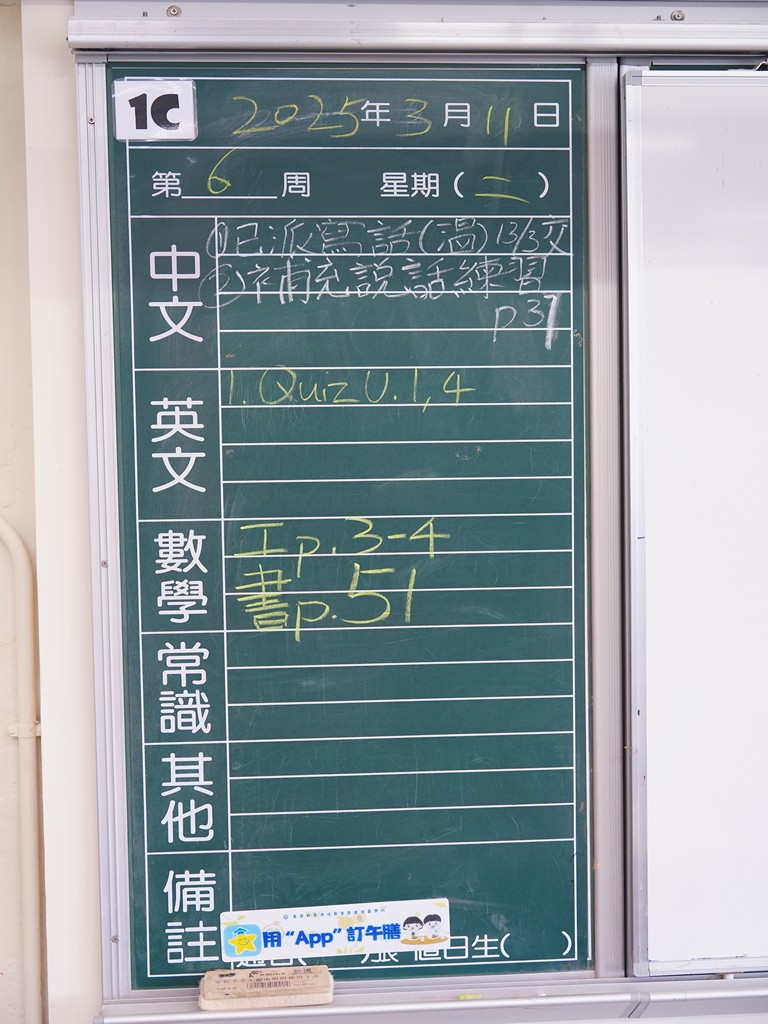 1C
2025年3月11日
第6周 星期(二)
中文
①已派寫話(温)13/3交
②補充說話練習
p37
英文
1. Quiz U.1,4
數學
工p.3-4
書p.51
常識
其他
備註
用“App”訂午膳
值日生( )